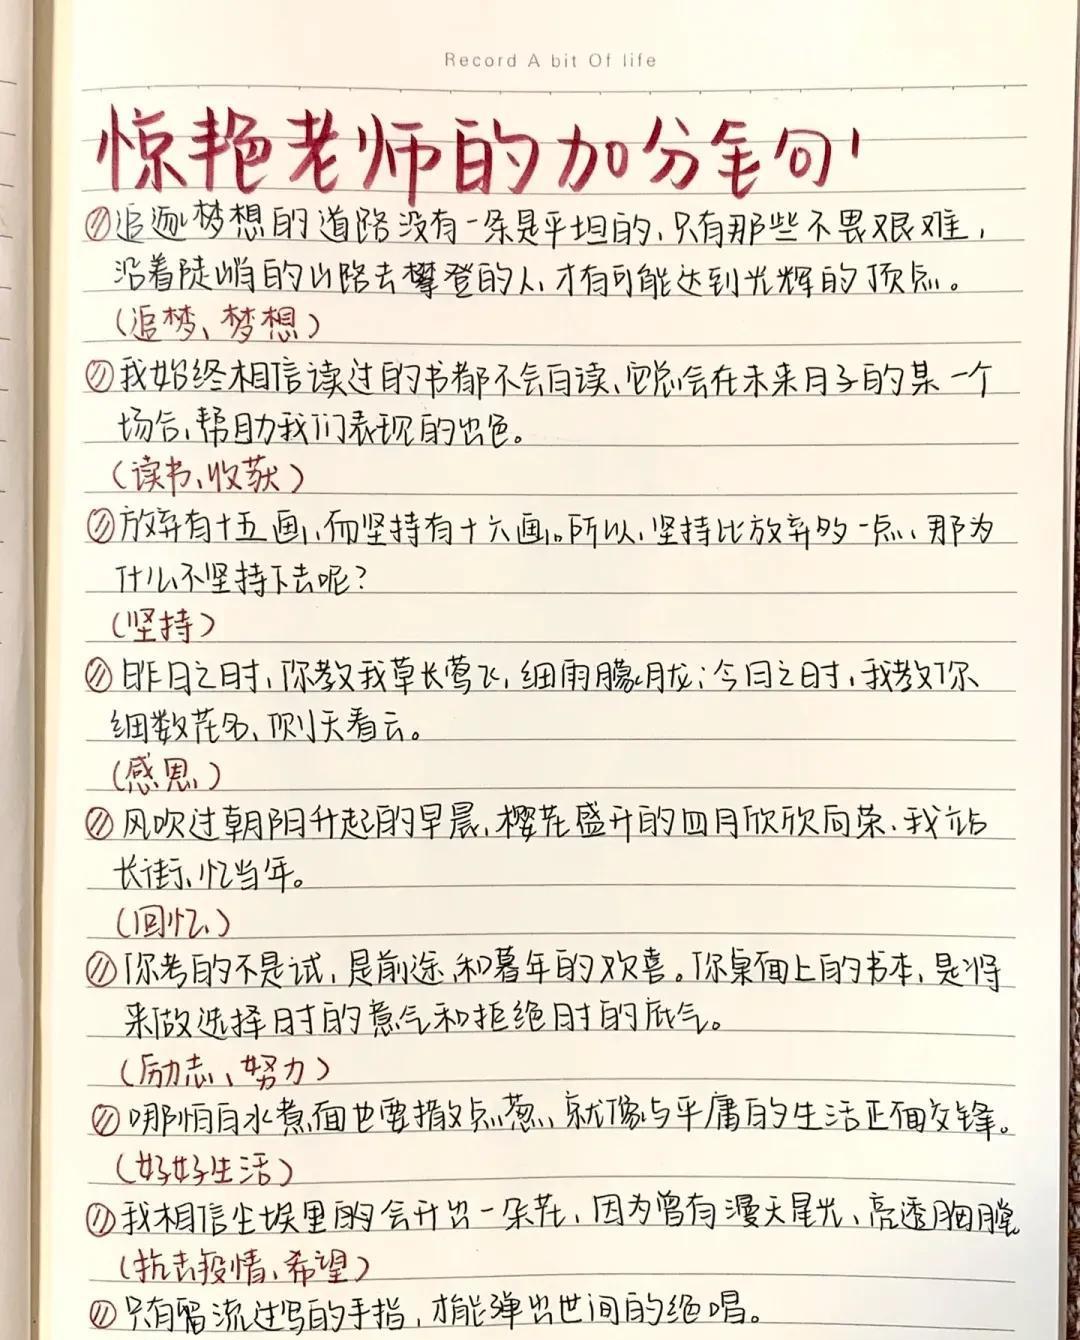 Record A bit Of life
惊艳老师的加分金句!
追逐梦想的道路没有一条是平坦的,只有那些不畏艰难,
沿着陡峭的山路去攀登的人,才有可能达到光辉的顶点。
(追梦、梦想)
我始终相信读过的书都不会白读,它总会在未来日子的某一个
场合,帮助我们表现的出色。
(读书、收获)
放弃有十五画,而坚持有十六画。所以,坚持比放弃多一点,那为
什么不坚持下去呢?
(坚持)
昨日之时,你教我草长莺飞,细雨朦胧;今日之时,我教你
细数花名,侧头看云。
(感恩)
风吹过朝阳升起的早晨,樱花盛开的四月欣欣向荣.我站
长街,忆当年。
(回忆)
你考的不是试,是前途和暮年的欢喜。你桌面上的书本,是将
来做选择时的意气和拒绝时的底气。
(励志、努力)
哪怕白水煮面也要撒点葱,就像与平庸的生活正面交锋。
(好好生活)
我相信尘埃里的会开出一朵花,因为曾有漫天星光,亮透胸膛
(抗击疫情、希望)
只有留流过的手指,才能弹出世间的绝唱。